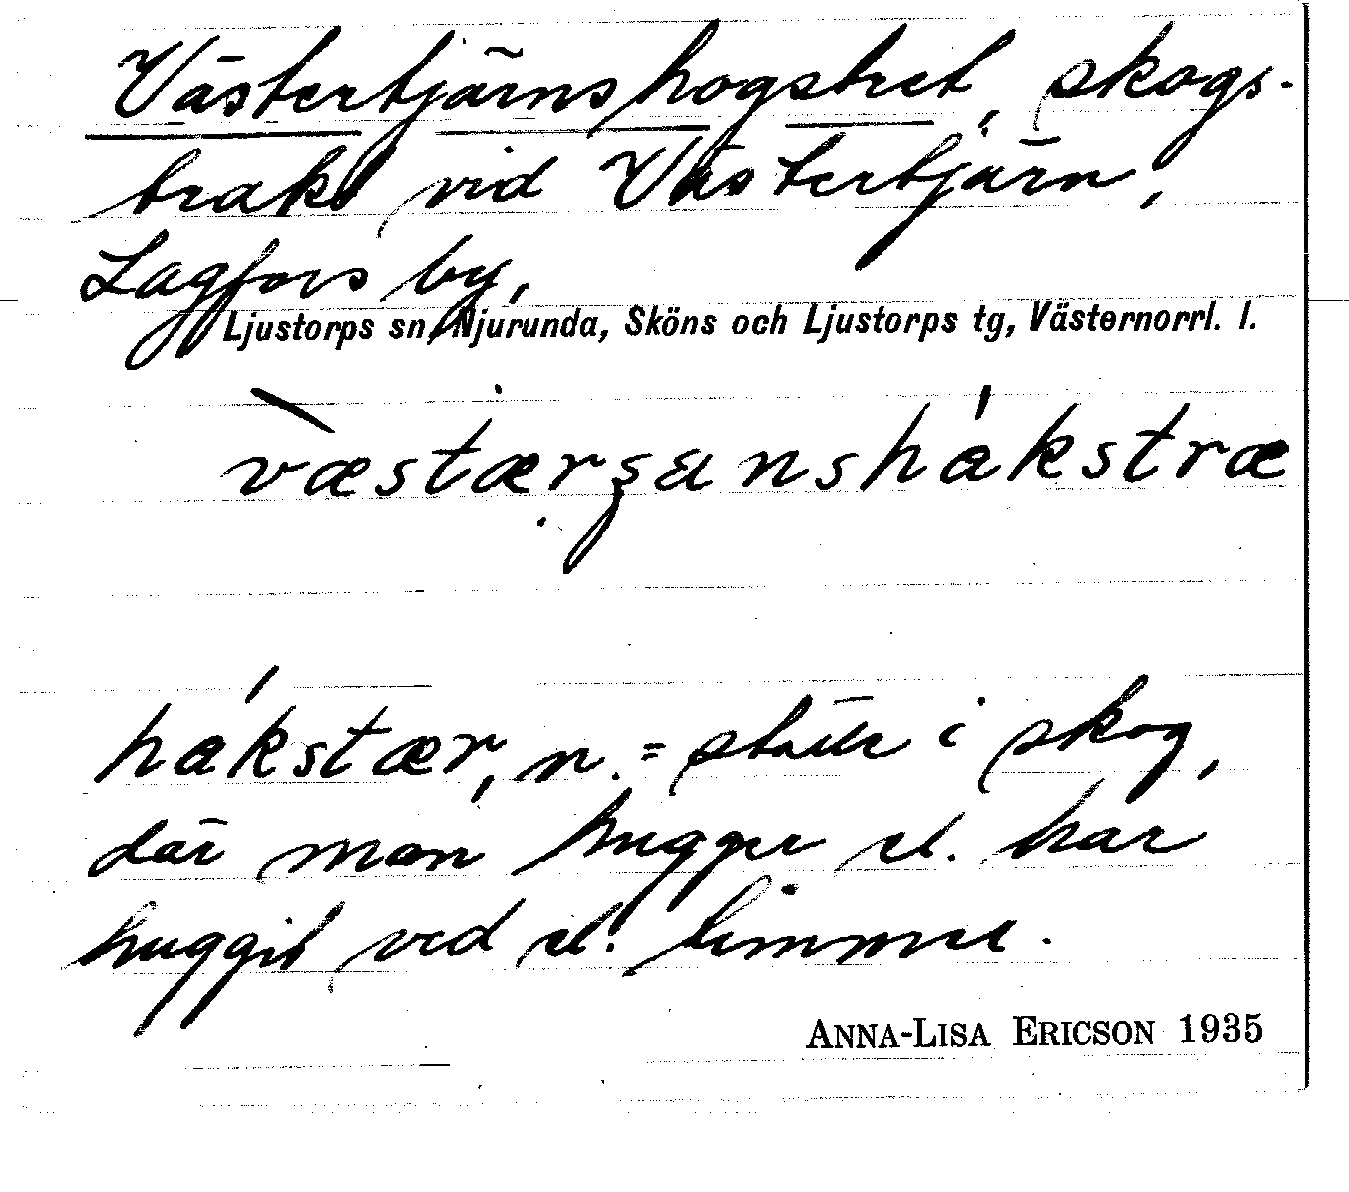 Västertjärnshogstret, skogs-
trakt vid Västertjärn,
Lagfors by,
Ljustorps sn, Njurunda, Sköns och Ljustorps tg, Västernorrl. l.
væstærʂanshákstræ
hákstær, n. = ställe i skog,
där man hugger el. har
huggit ved el. timmer.
ANNA-LISA ERICSON 1935